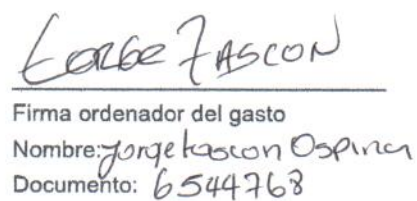 Jorge Tascon
Firma ordenador del gasto
Nombre: Jorge tascon Ospina
Documento: 6544768